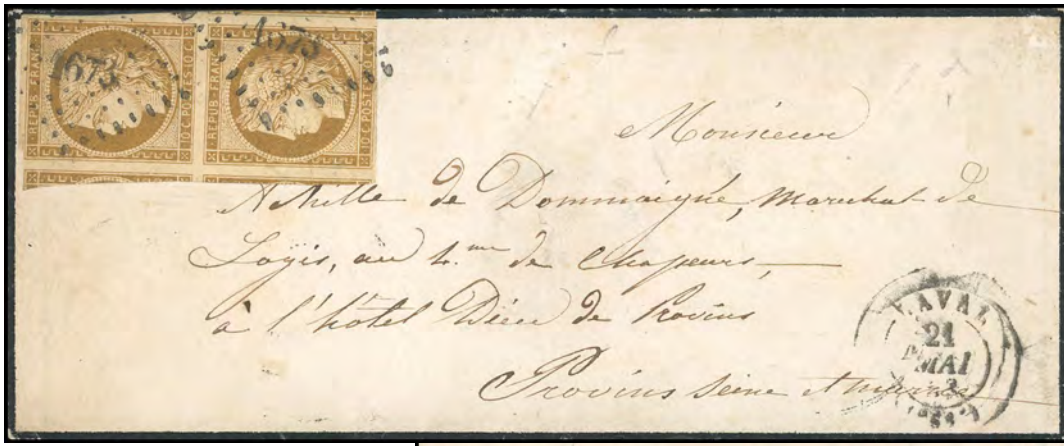 REPUB. FRANC.
10 C. POSTES 10 C.
1673
REPUB. FRANC.
10 C. POSTE
1673
Monsieur
Achille de Dommaigné, Marechal de
Logis, au 4.me de Chasseurs,
à l'hôtel Dieu de Provins
Provins Seine et marne
LAVAL
21
MAI